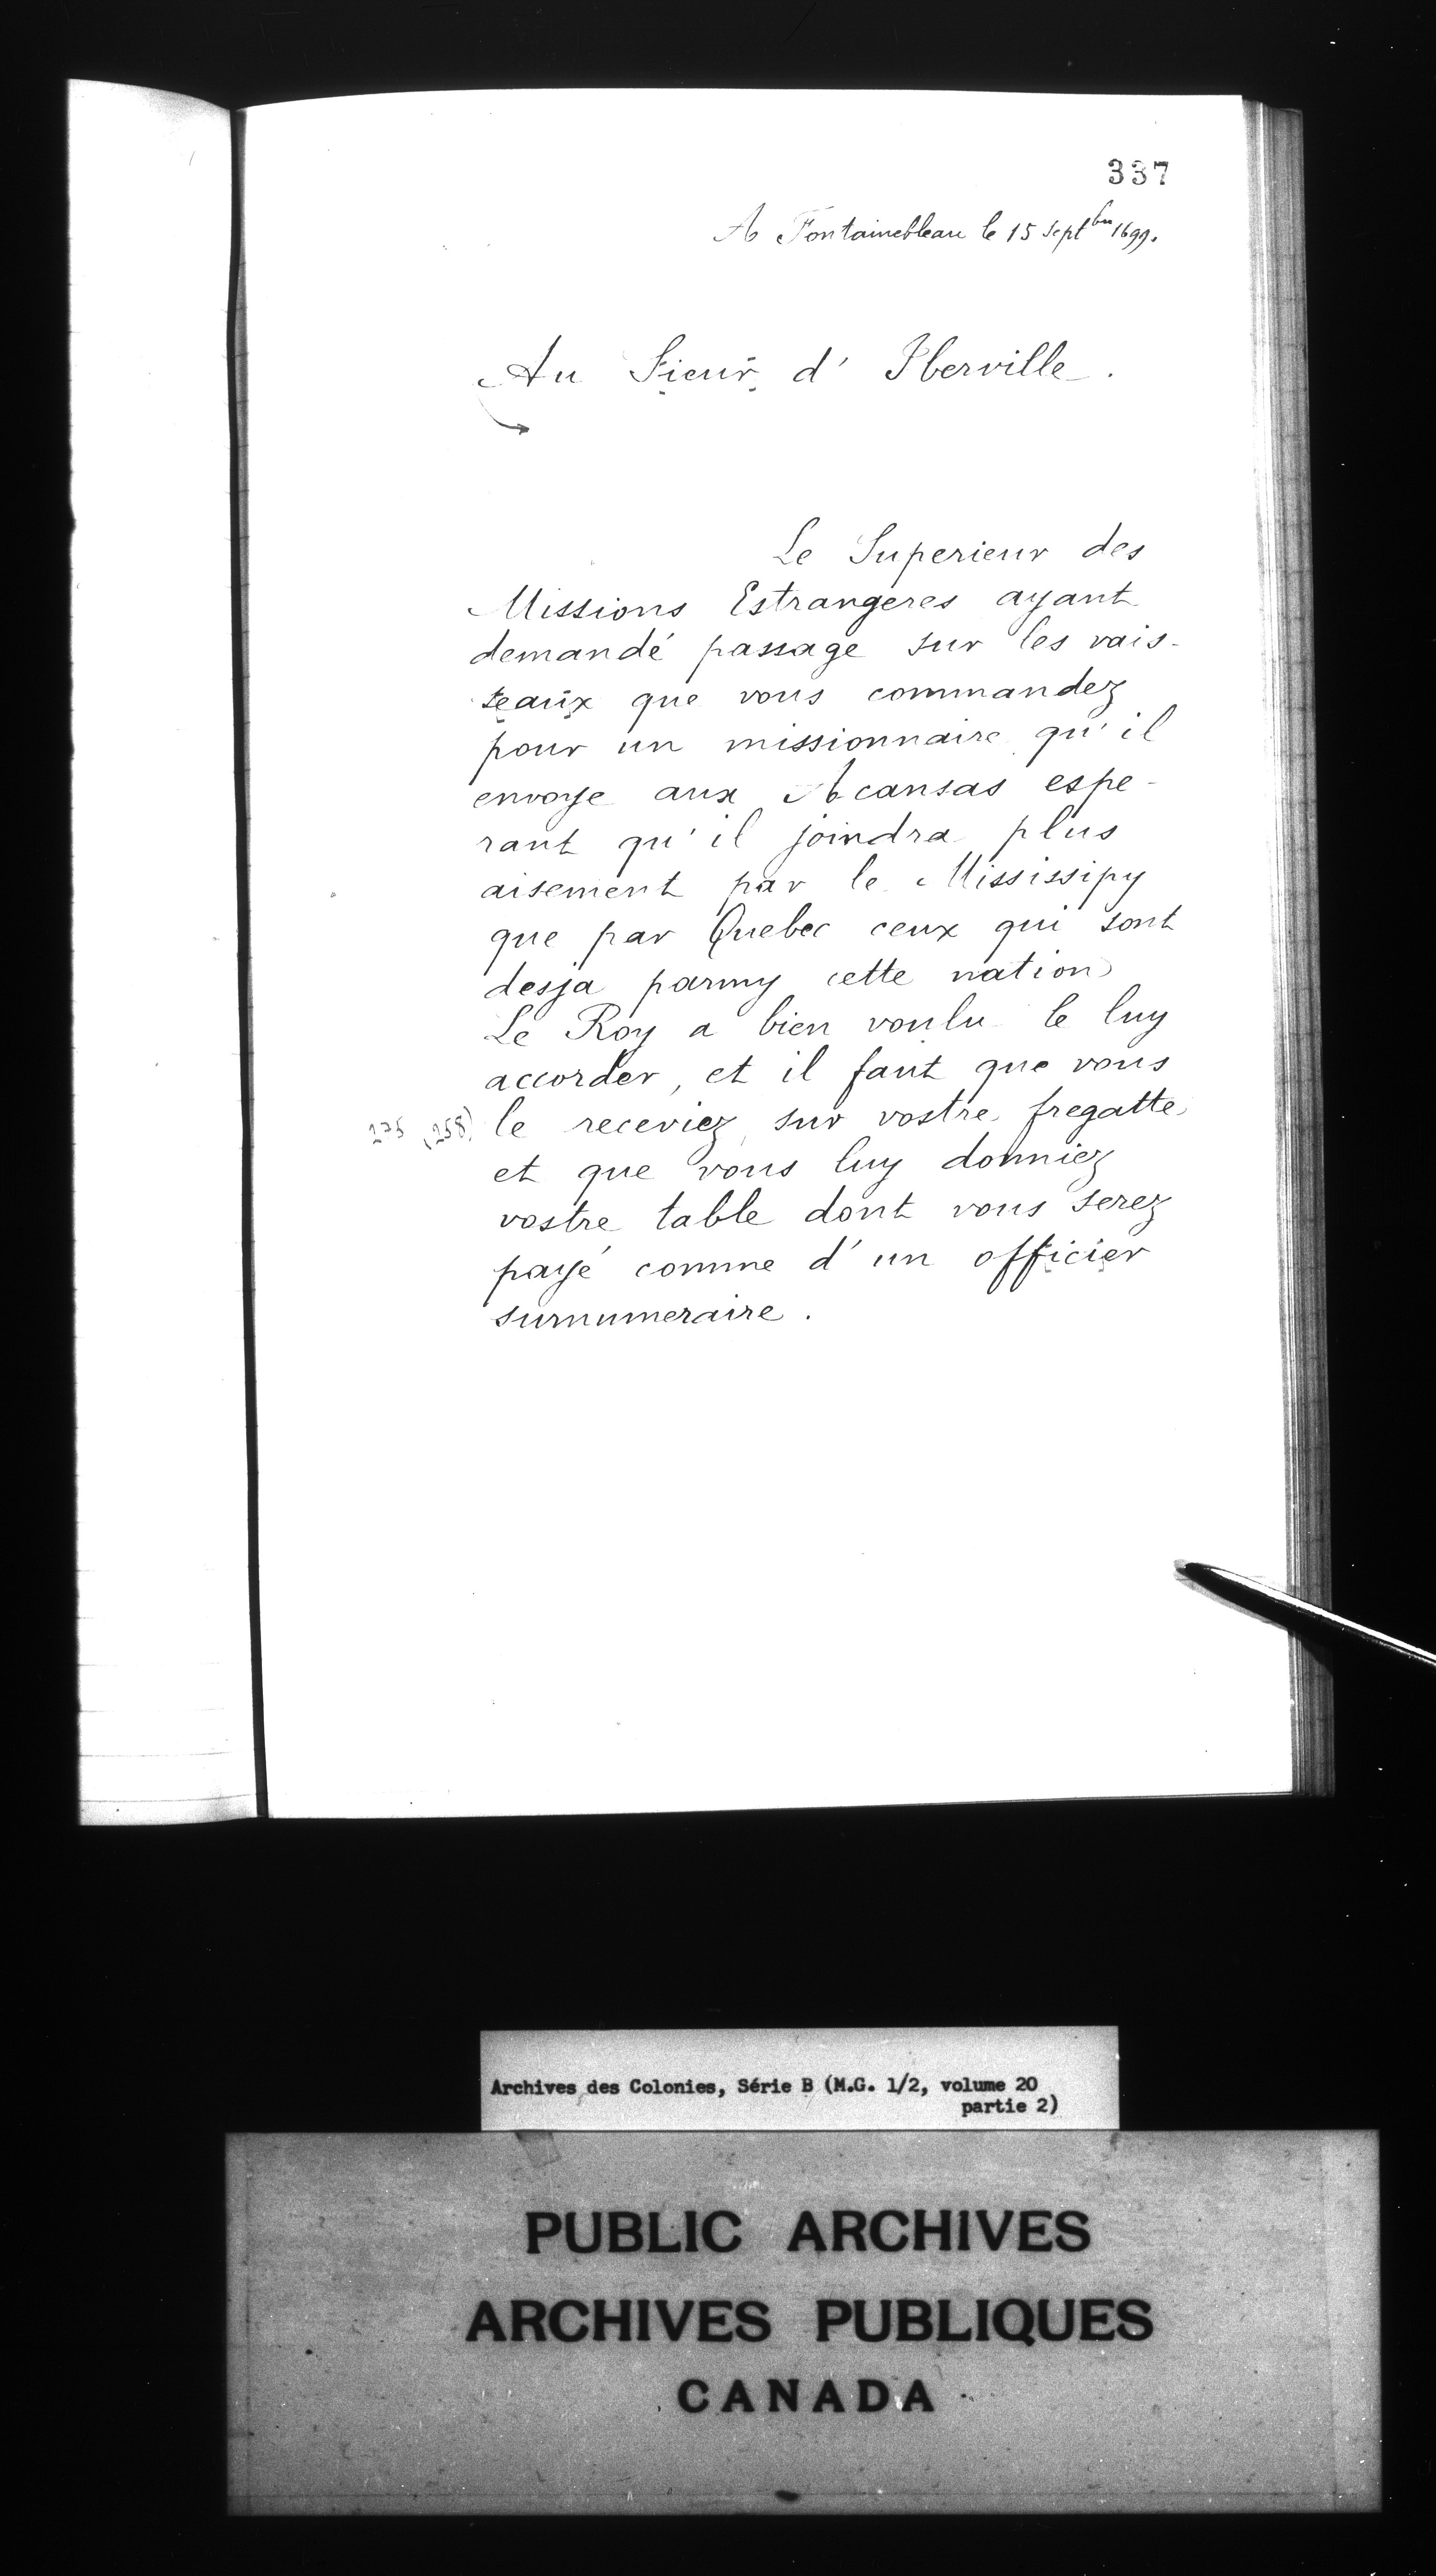 337
A Fontainebleau le 15 Septbre 1699.
Au Sieur d' Iberville.
Le Superieur des
Missions Estrangeres ayant
demandé passage sur les vais-
seaux que vous commandez
pour un missionnaire qu'il
envoye aux Acansas espe-
rant qu'il joindra plus
aisement par le Mississipy
que par Quebec ceux qui sont
desja parmy cette nation
Le Roy a bien voulu le luy
accorder, et il faut que vous
275 (258) le receviez sur vostre fregatte
et que vous luy donniez
vostre table dont vous serez
payé comme d'un officier
surnumeraire.
Archives des Colonies, Série B (M.G. 1/2, volume 20
partie 2)
PUBLIC ARCHIVES
ARCHIVES PUBLIQUES
CANADA